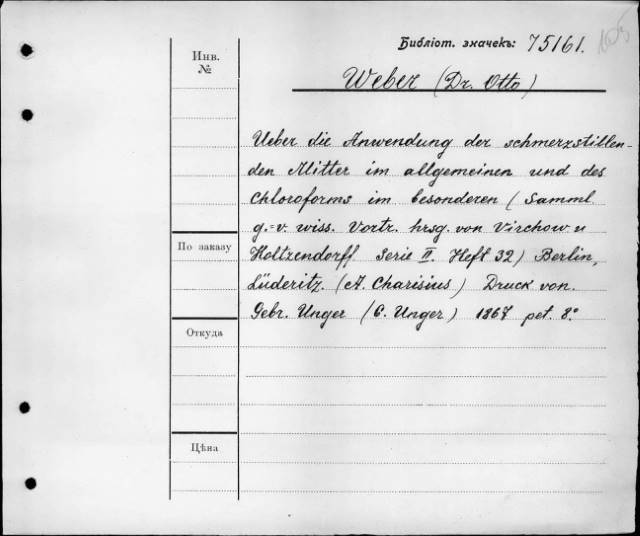 Библіот. значекъ: 75161.
Инв. №
Weber (Dr. Otto)
Ueber die Anwendung der schmerzstillen-
den Mitter im allgemeinen und des
Chloroforms im besonderen (Samml.
g.=v. wiss. Vortr. hrsg. von Virchow u
Holtzendorff. Serie II. Heft 32) Berlin,
Lüderitz. (A. Charisius) Druck von.
Gebr. Unger (C. Unger) 1867 pet. 8.°
По заказу
Откуда
Цѣна